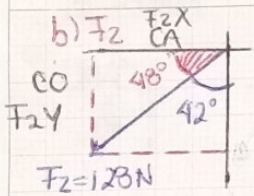 b) F2
F2X
CA
CO
48°
F2Y
42°
F2=128N